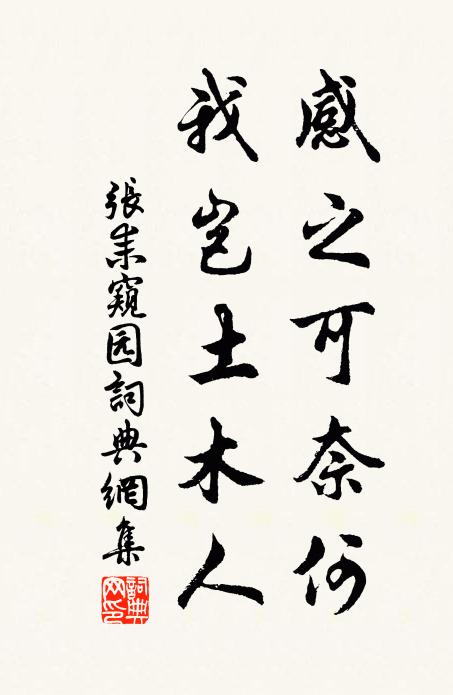 感之可奈何
我岂土木人
張耒窺园詞典網集
詞典網印